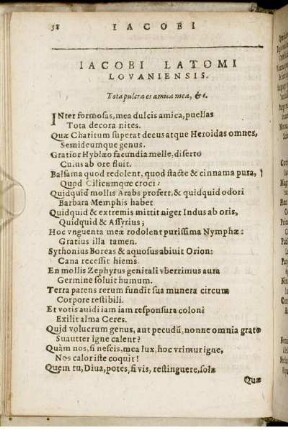 58 IACOBI
IACOBI LATOMI
LOVANIENSIS.
Tota pulcra es amica mea, &c.
INter formosas, mea dulcis amica, puellas
Tota decora nites.
Quæ Charitum superat decus atque Heroidas omnes,
Semideumque genus.
Gratior Hyblæo facundia melle, diserto
Cuius ab ore fluit.
Balsama quod redolent, quod stacte & cinnama pura,
Quod Ciliciumque croci:
Quidquid mollis Arabs profert, & quidquid odori
Barbara Memphis habet
Quidquid & extremis mittit niger Indus ab oris,
Quidquid & Assyrius;
Hoc vnguenta meæ redolent purissima Nymphæ:
Gratius illa tamen.
Sythonius Boreas & aquosus abiuit Orion:
Cana recessit hiems.
En mollis Zephyrus genitali vberrimus aura
Germine soluit humum.
Terra parens rerum fundit sua munera circum
Corpore restibili.
Et votis auidi iam iam responsura coloni
Exilit alma Ceres.
Quid volucrum genus, aut pecudũ, nonne omnia grato
Suauiter igne calent?
Quàm nos, si nescis, mea lux, hoc vrimur igne,
Nos calor iste coquit!
Quem tu, Diua, potes, si vis, restinguere, sola
Quæ